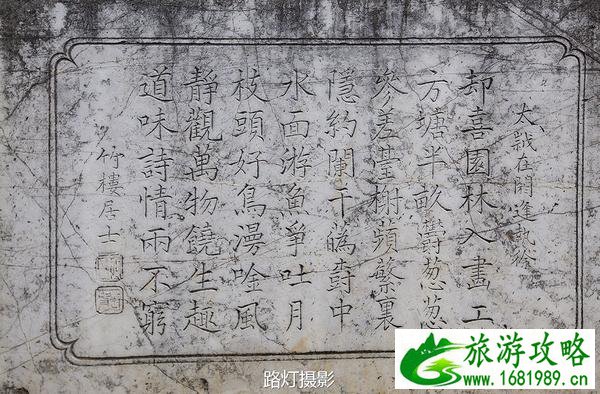 太歲在閼逢執徐
却喜園林入畫工
方塘半畝欝葱葱
參差臺榭頻繁裏
隱約闌干中
水面游魚爭吐月
枝頭好鳥漫唫風
靜觀萬物饒生趣
道味詩情兩不窮
竹樓居士
路灯摄影
旅游攻略
www.1681989.cn